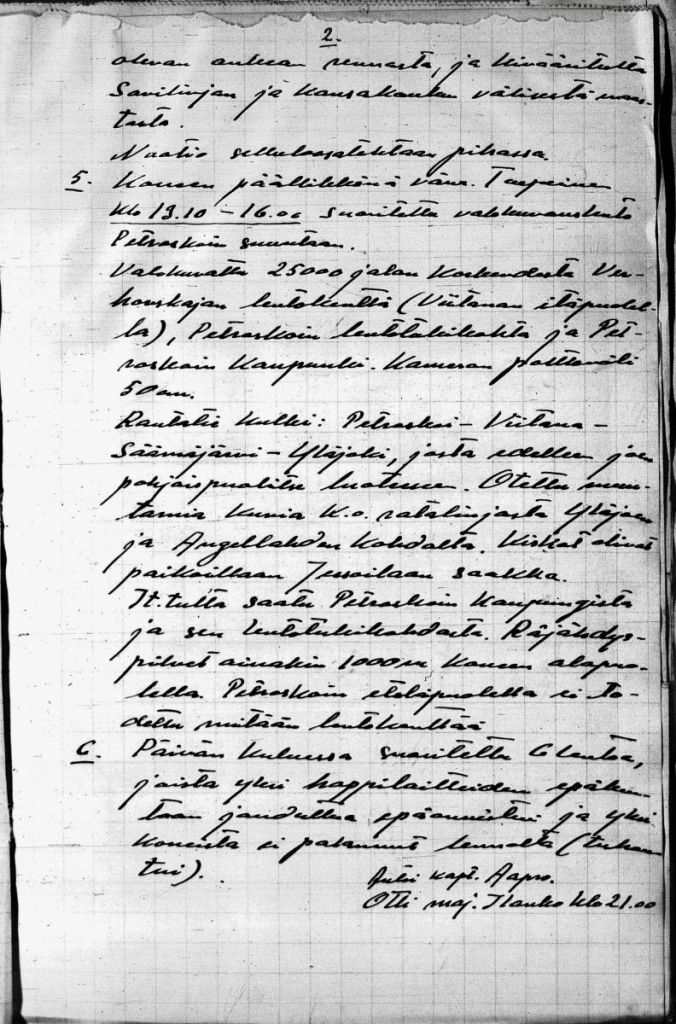 2.
olevan aukean reunasta, ja kivääritulta
Savilinjan ja Kansakoulun välisestä maas-
tosta.
Nuotio selluloosatehtaan pihassa.
5. Koneen päällikkönä vänr. Turpeinen
klo 13.10 – 16.00 suoritettu valokuvauslento
Petroskoin suuntaan.
Valokuvattu 25000 jalan korkeudesta Ver-
hovskajan lentokenttä (Viitanan itäpuolel-
la), Petroskoin lentotukikohta ja Pet-
roskoin kaupunki. Kameran polttoväli
50 cm.
Rautatie kulki: Petroskoi – Viitana –
Säämäjärvi – Yläjoki, josta edelleen joen
pohjoispuolitse luoteeseen. Otettu muu-
tamia kuvia k.o. ratalinjasta Yläjoen
ja Angellahden kohdalta. Kiskot olivat
paikoillaan Jessoilaan saakka.
It.tulta saatu Petroskoin kaupungista
ja sen lentotukikohdasta. Räjähdys-
pilvet ainakin 1000 m koneen alapuo-
lella. Petroskoin eteläpuolella ei to-
dettu mitään lentokenttää
6. Päivän kuluessa suoritettu 6 lentoa,
joista yksi happilaitteiden epäkun-
toon jouduttua epäonnistui ja yksi
koneista ei palannut lennolta (tuhou-
tui).
Antoi kapt. Aapro.
Otti maj. Ilanko klo 21.00